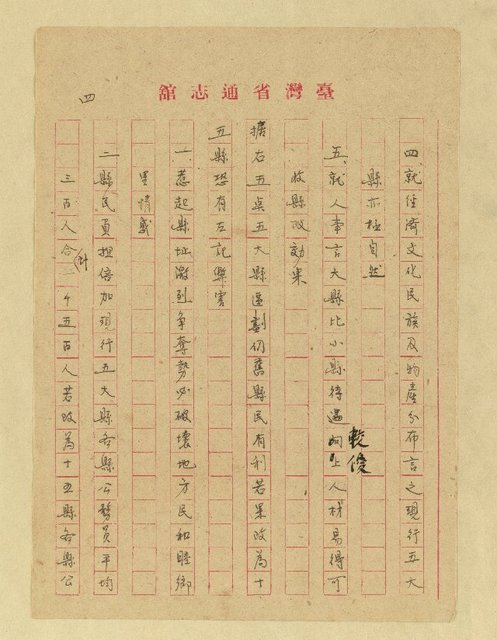 臺灣省通志館
四就經濟文化民族及物產分布言之現行五大
縣亦極自然
五、就人事言大縣比小縣待遇較優人材易得可
收縣政効果
據右五点五大縣區劃仍舊縣民有利若果改為十
五縣恐有左記弊害
一、惹起縣址激烈争奪勢必破壞地方民和睦鄉
里情感
二、縣民負担倍加現行五大縣各縣公務員平均
三百人合計二千五百人若改為十五縣各縣公
四